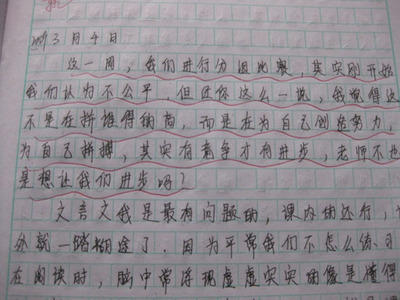 3月4日
这一周,我们进行分组比赛,其实刚开始
我们认为不公平,但这么一说,我觉得这
不是在挤谁得的高,而是在为自己创造努力,
为自己拼搏,其实有竞争才有进步,老师不也
是想让我们进步吗?
文言文我是最有问题的,课内的还行,
就一塌糊涂了.因为平常我们不怎么练习
在阅读时,脑中常浮现虚虚实实的像是懂得